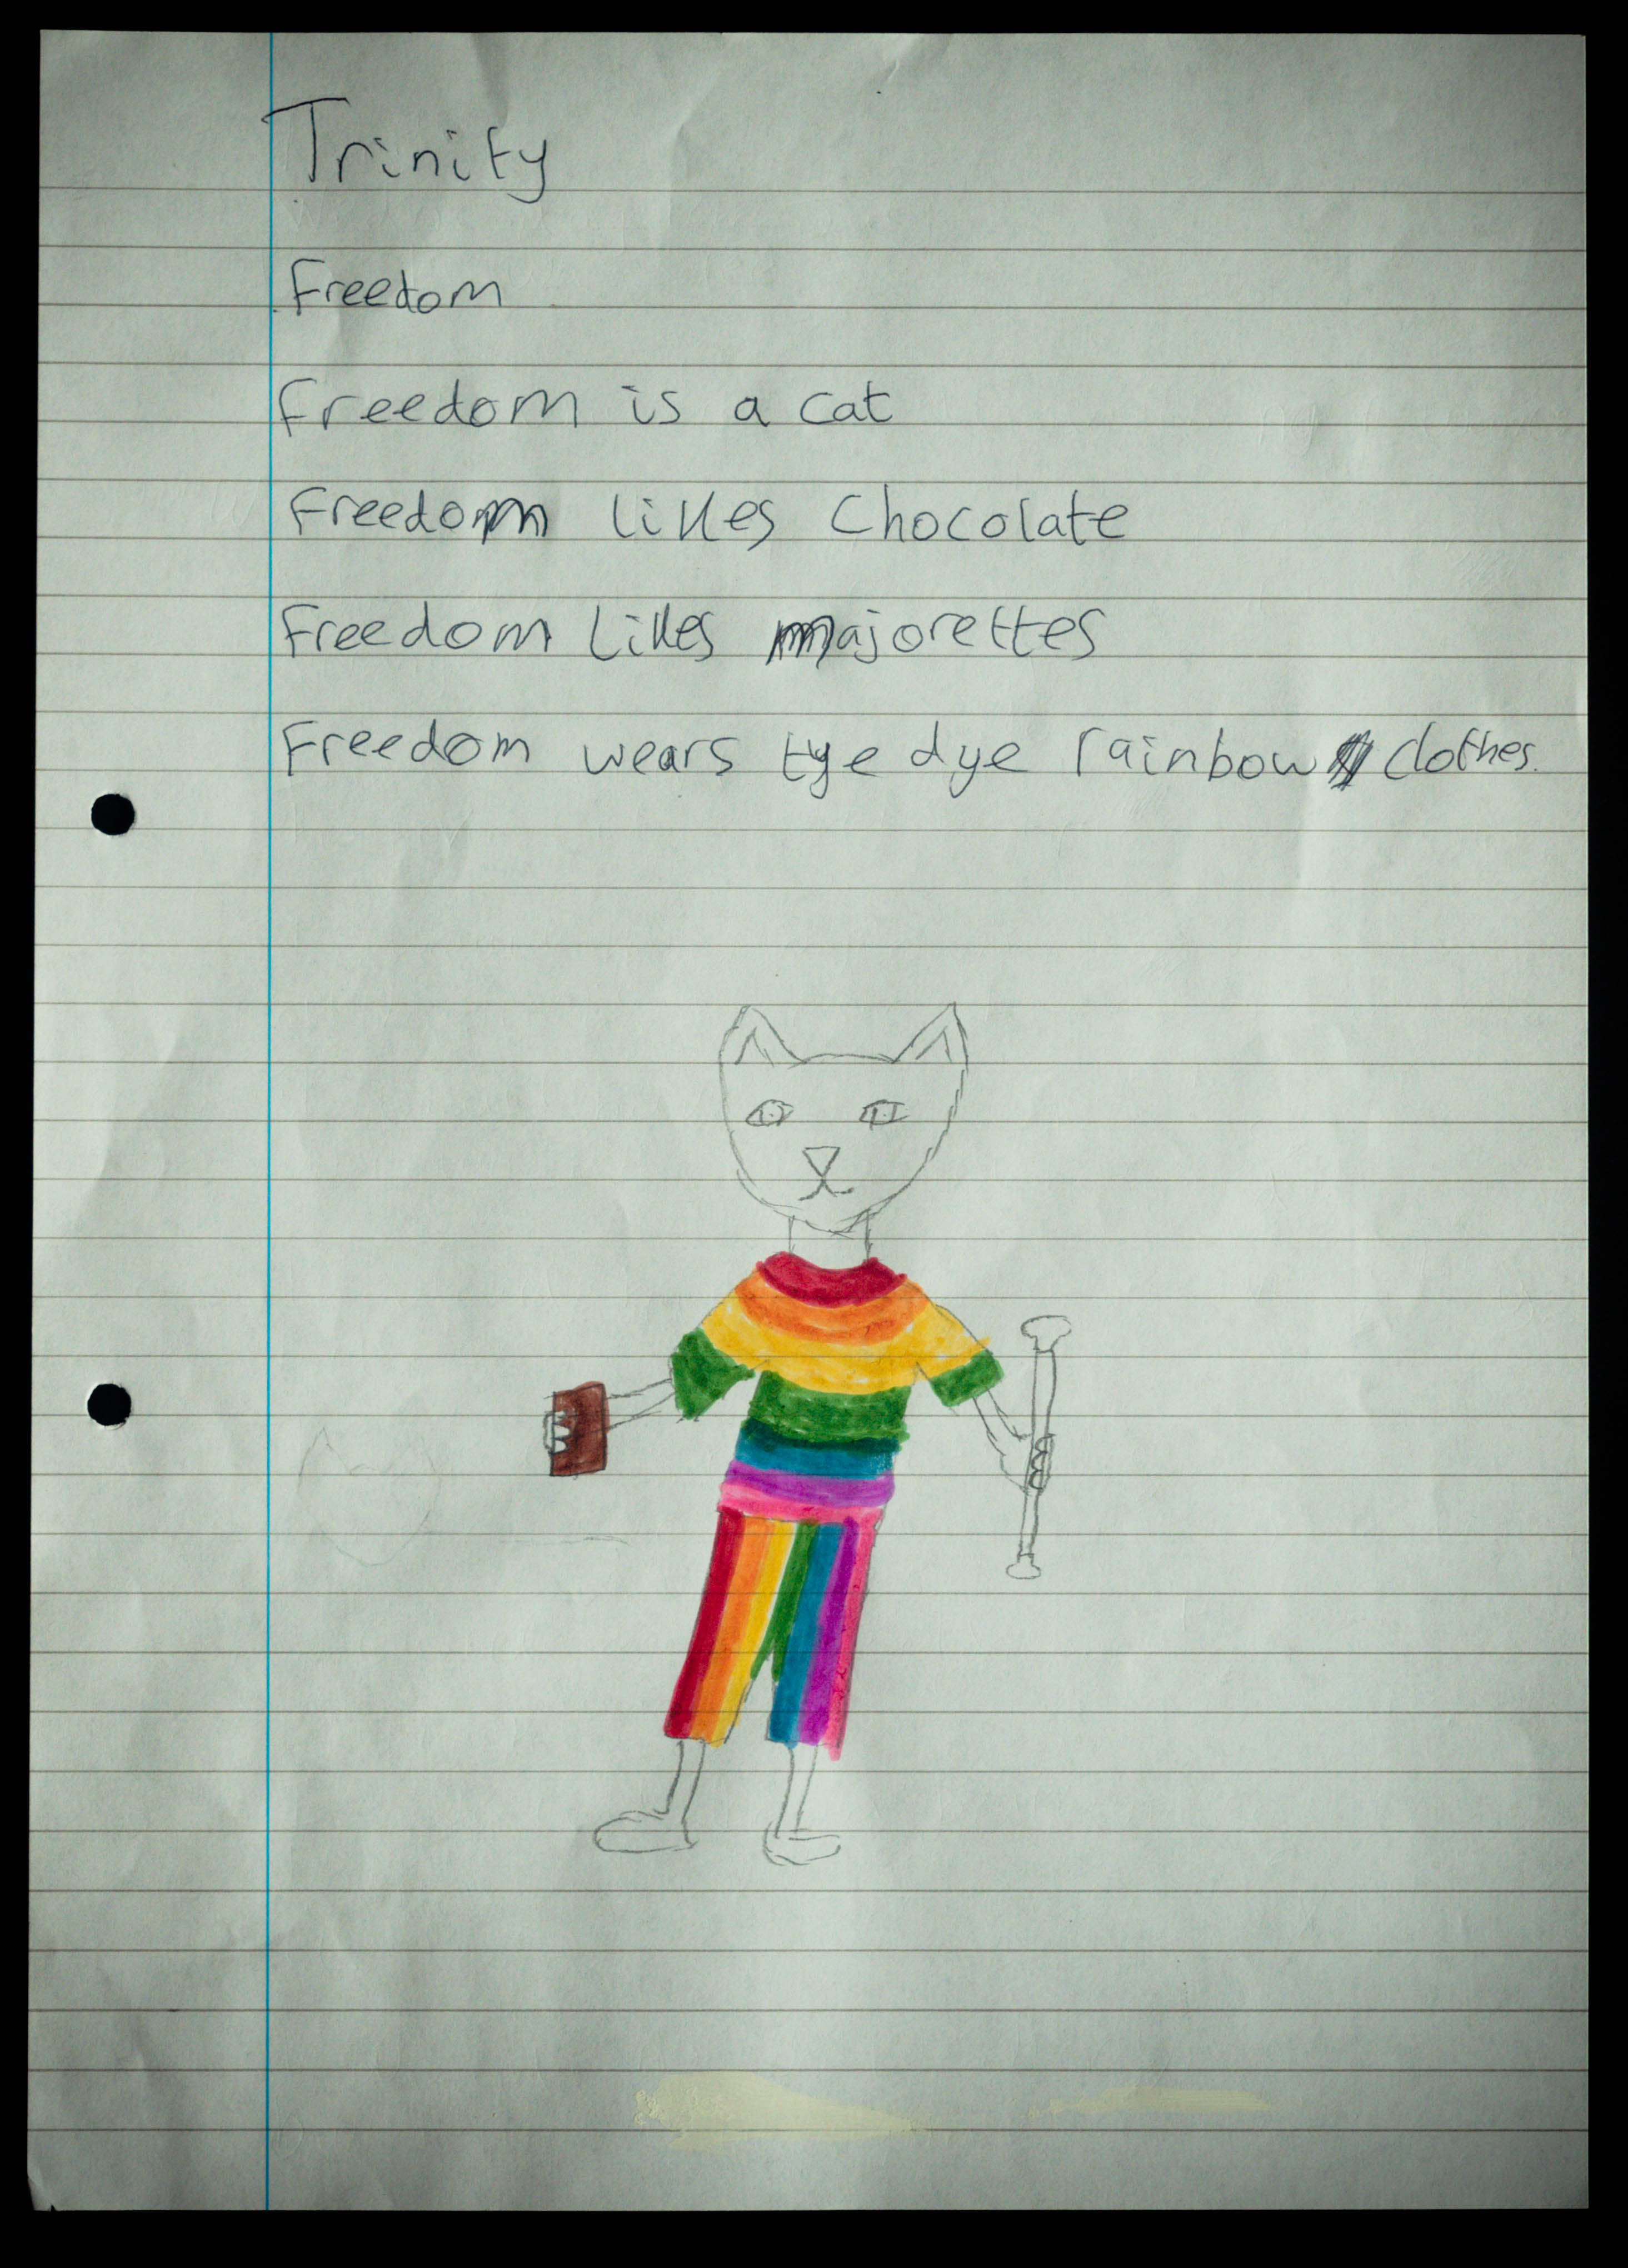 Trinity
Freedom
Freedom is a cat
Freedom likes Chocolate
Freedom Likes majorettes
Freedom wears tye dye rainbow clothes.